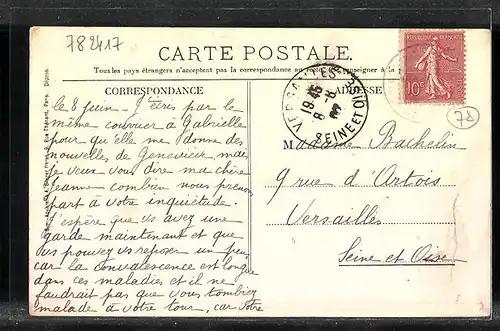 782417
CARTE POSTALE
Tous les pays étrangers n'acceptent pas la correspondance au recto. (Se renseigner à la
CORRESPONDANCE
ADRESSE
VERSAILLES
19 45
8 -6
SEINE ET OISE
RÉPUBLIQUE FRANÇAISE
10c
78
le 8 Juin - J'écris par le
même courrier à Gabrielle
pour qu'elle me donne des
nouvelles de Geneviève mais
je veux vous dire ma chère
Jeanne combien nous prenons
part à votre inquiétude.
J'espère que vs avez une
garde maintenant et que
vs pouvez vs reposer un peu,
car la convalescence est longue
dans ces maladies et il ne
faudrait pas que vous tombiez
malade à votre tour, car votre
Madame Bachelin
9 rue d'Artois
Versailles
Seine et Oise